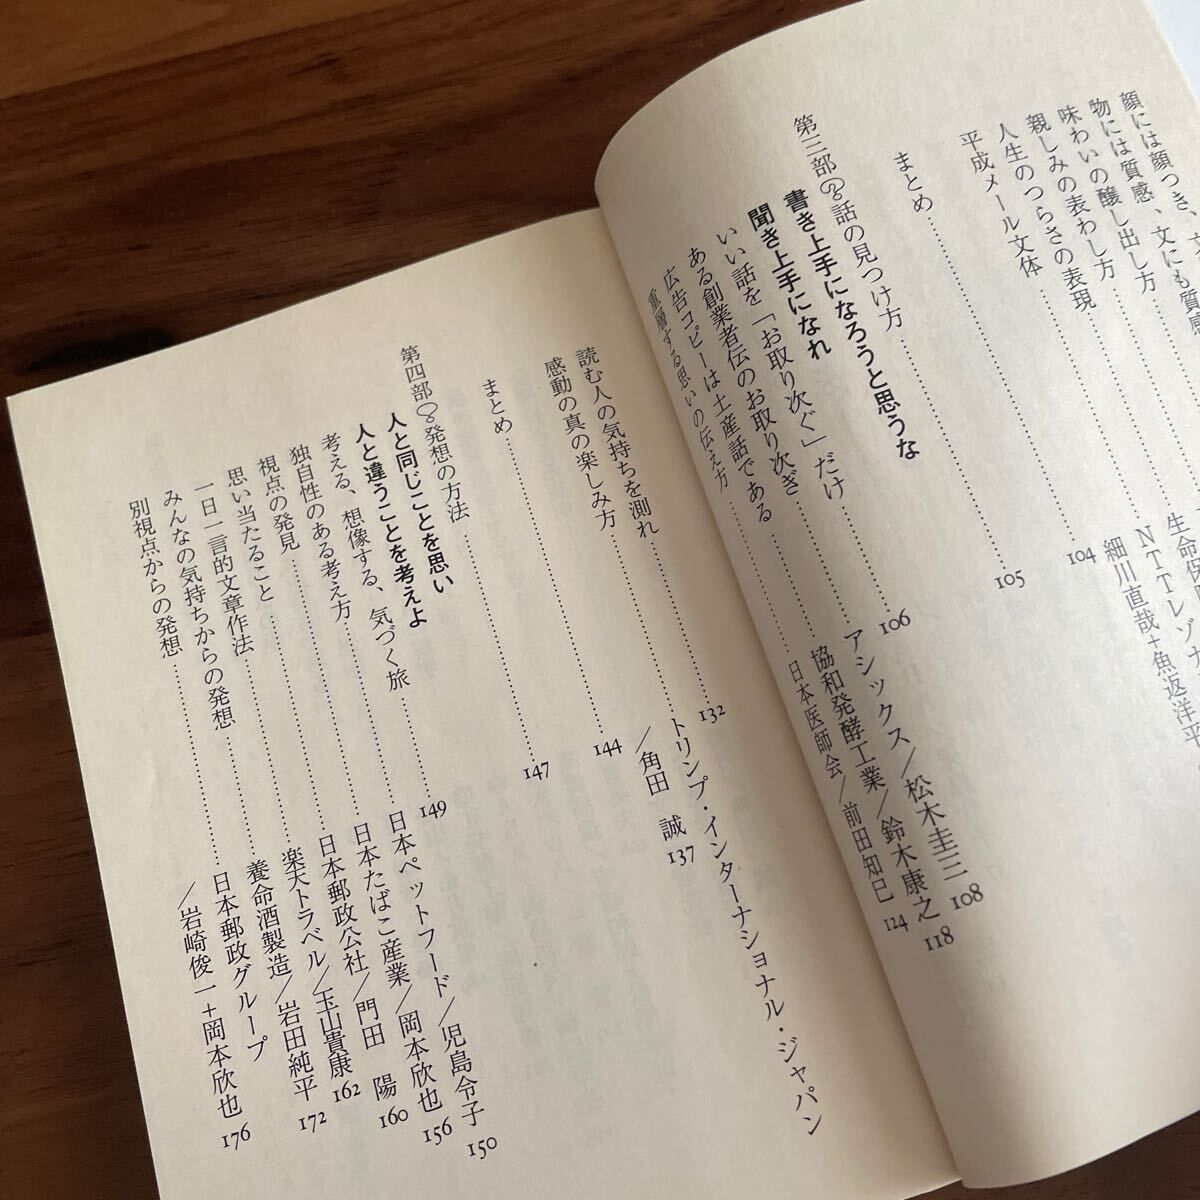 物には質感、文にも質感
味わいの醸し出し方
親しみの表わし方
人生のつらさの表現
細川直哉+魚返洋平
平成メール文体……104
まとめ……105
第三部 話の見つけ方
書き上手になろうと思うな
聞き上手になれ
いい話を「お取り次ぐ」だけ……106
ある創業者伝のお取り次ぎ……アシックス/松木圭三 108
広告コピーは土産話である……協和発酵工業/鈴木康之 118
重層する思いの伝え方……日本医師会/前田知巳 124
読む人の気持ちを測れ……132 トリンプ・インターナショナル・ジャパン
/角田 誠 137
感動の真の楽しみ方……144
まとめ……147
第四部 発想の方法
人と同じことを思い
人と違うことを考えよ
考える、想像する、気づく旅……149
独自性のある考え方……日本ペットフード/児島令子 150
視点の発見……日本たばこ産業/岡本欣也 156
思い当たること……日本郵政公社/門田 陽 160
一日一言的文章作法……楽天トラベル/玉山貴康 162
みんなの気持ちからの発想……養命酒製造/岩田純平 172
別視点からの発想……日本郵政グループ
/岩崎俊一+岡本欣也 176